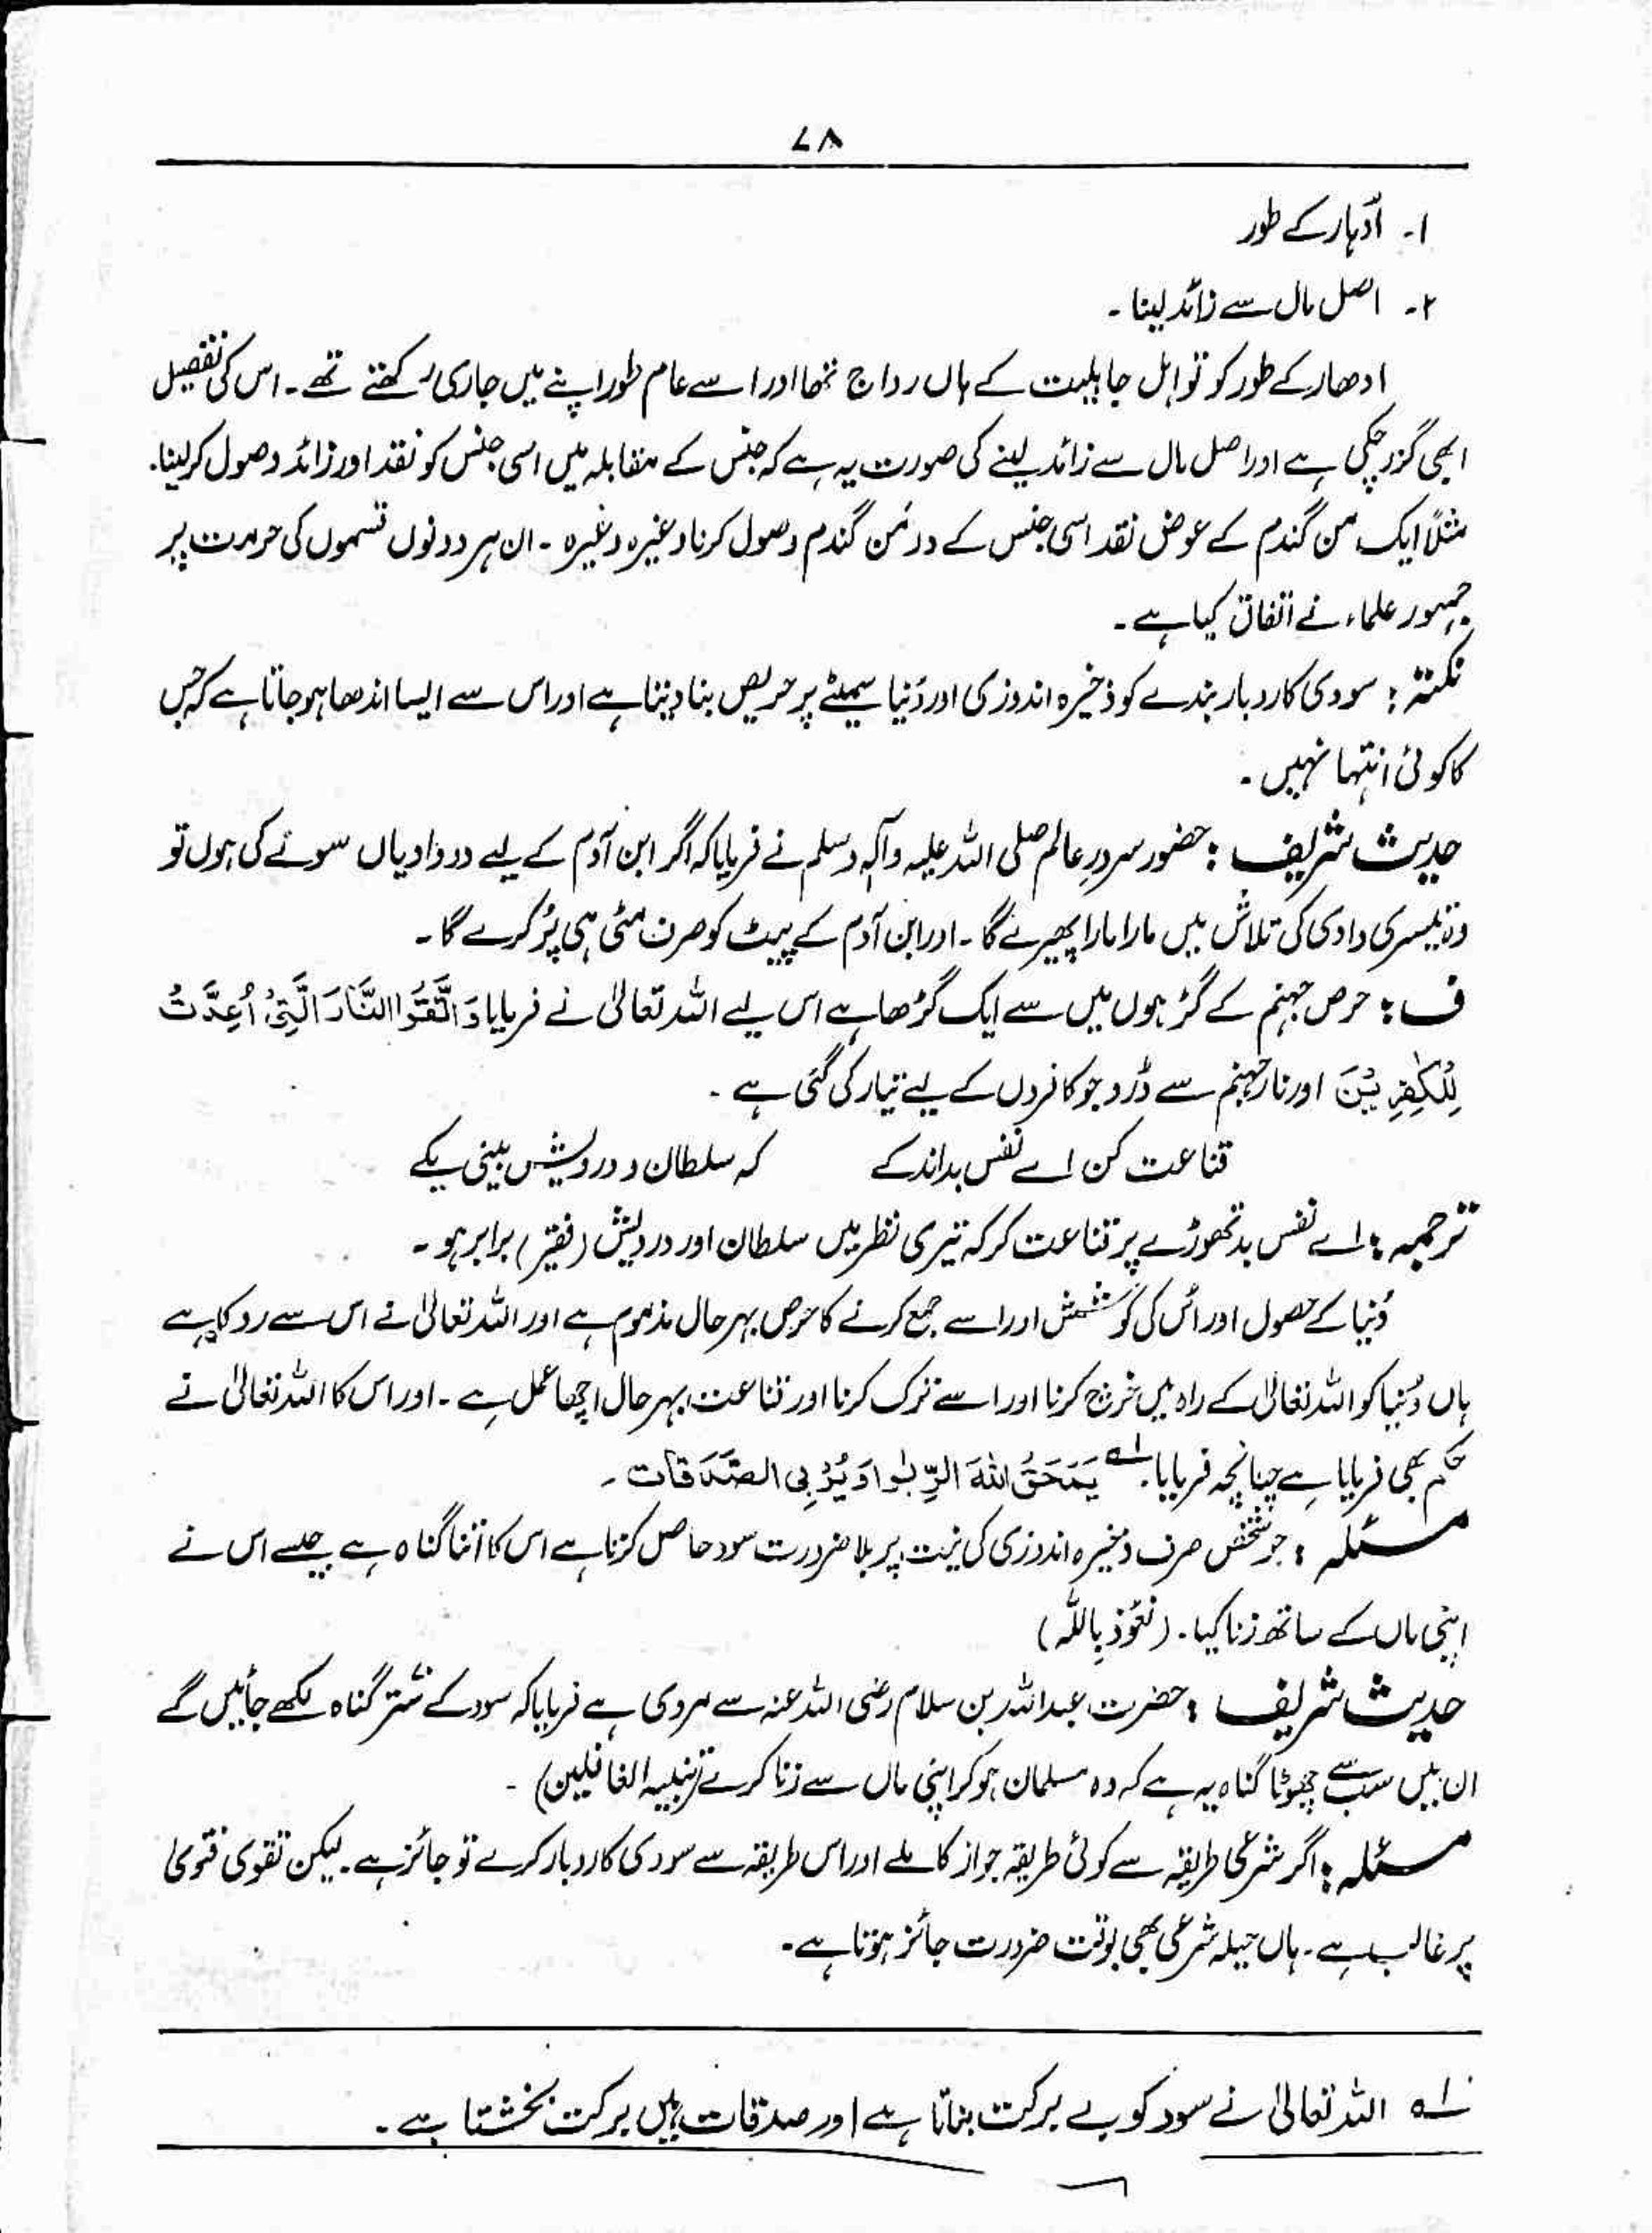 ۷۸
۱۔ اُدہار کے طور
۲۔ اصل مال سے زائد لینا ۔
ادھار کے طور کو تو اہل جاہلیت کے ہاں رواج تھا اور اسے عام طور اپنے میں جاری رکھتے تھے ۔ اس کی تفصیل
ابھی گزر چکی ہے اور اصل مال سے زائد لینے کی صورت یہ ہے کہ جنس کے مقابلہ میں اسی جنس کو نقد اور زائد وصول کر لینا.
مثلاً ایک من گندم کے عوض نقد اسی جنس کے دو مَن گندم وصول کرنا وغیرہ وغیرہ ۔ ان ہر دونوں قسموں کی حرمت پر
جمہور علماء نے اتفاق کیا ہے ۔
نکتہ : سودی کاروبار بندے کو ذخیرہ اندوزی اور دُنیا سمیٹنے پر حریص بنا دیتا ہے اور اس سے ایسا اندھا ہو جاتا ہے کہ جس
کا کوئی انتہا نہیں ۔
حدیث شریف : حضور سرورِ عالم صلی اللہ علیہ وآلہ وسلم نے فرمایا کہ اگر ابن آدم کے لیے دو وادیاں سونے کی ہوں تو
وہ تیسری وادی کی تلاش میں مارا مارا پھیرے گا ۔ اور ابن آدم کے پیٹ کو صرف مٹی ہی پُر کرے گا ۔
ف : حرص جہنم کے گڑہوں میں سے ایک گڑھا ہے اس لیے اللہ تعالیٰ نے فرمایا وَاتَّقُوا النَّارَ الَّتِیْ اُعِدَّتْ
لِلْکٰفِرِیْنَ اور نارِ جہنم سے ڈرو جو کافروں کے لیے تیار کی گئی ہے ۔
قناعت کن اے نفس بداندکے کہ سلطان و درویش بینی یکے
ترجمہ : اے نفس بد تھوڑے پر قناعت کر کہ تیری نظر میں سلطان اور درویش (فقیر) برابر ہو ۔
دُنیا کے حصول اور اُس کی کوشش اور اسے جمع کرنے کا حرص بہر حال مذموم ہے اور اللہ تعالیٰ نے اس سے روکا ہے
ہاں دُنیا کو اللہ تعالیٰ کے راہ میں خرچ کرنا اور اسے ترک کرنا اور قناعت بہر حال اچھا عمل ہے ۔ اور اس کا اللہ تعالیٰ نے
حکم بھی فرمایا ہے چنانچہ فرمایا. لہ یَمْحَقُ اللّٰہُ الرِّبٰوا وَیُرْبِی الصَّدَقَات ۔
مسئلہ : جو شخص صرف ذخیرہ اندوزی کی نیت پر بلا ضرورت سود حاصل کرتا ہے اس کا اتنا گناہ ہے جیسے اس نے
اپنی ماں کے ساتھ زنا کیا ۔ (نَعُوْذ بِاللّٰہ)
حدیث شریف : حضرت عبداللہ بن سلام رضی اللہ عنہ سے مروی ہے فرمایا کہ سود کے ستر گناہ لکھے جائیں گے
ان میں سب سے چھوٹا گناہ یہ ہے کہ وہ مسلمان ہو کر اپنی ماں سے زنا کرے (تنبیہ الغافلین) ۔
مسئلہ : اگر شرعی طریقہ سے کوئی طریقہ جواز کا ملے اور اس طریقہ سے سودی کاروبار کرے تو جائز ہے ۔ لیکن تقوی فتویٰ
پر غالب ہے ۔ ہاں حیلہ شرعی بھی بوقت ضرورت جائز ہوتا ہے ۔
لہ اللہ تعالیٰ نے سود کو بے برکت بناتا ہے اور صدقات میں برکت بخشتا ہے ۔